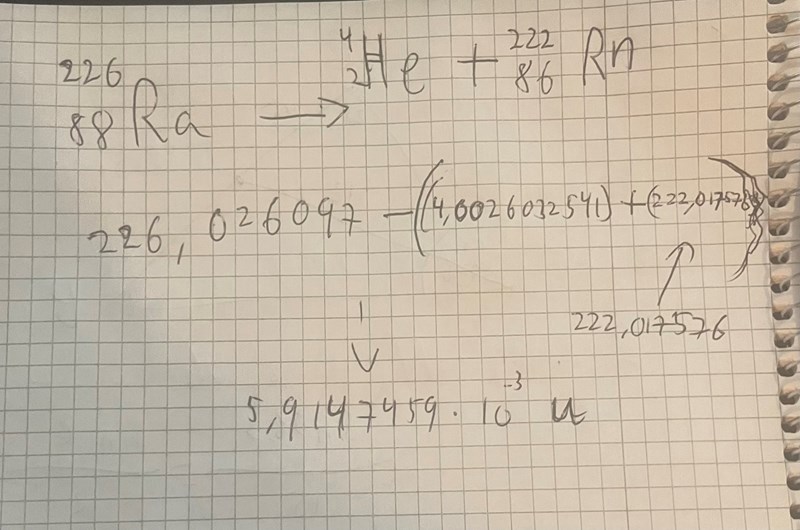 ²²⁶₈₈Ra → ⁴₂He + ²²²₈₆Rn
226,026097 - ((4,0026032541) + (222,01757
222,017576
5,9147459 · 10⁻³ u